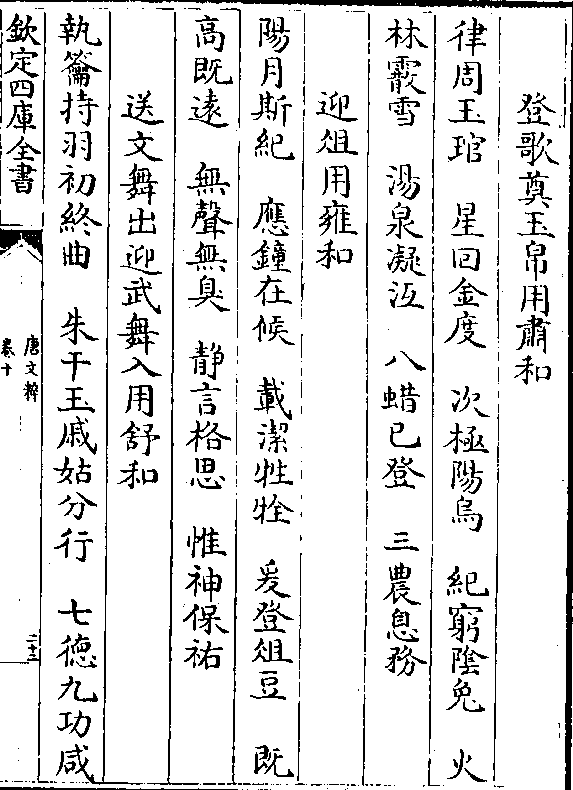 登歌奠玉帛用肅和
律周玉琯　星回金度　次極陽烏　紀窮陰兔　火
林霰雪　湯泉凝沍　八蜡已登　三農息務
迎俎用雍和
陽月斯紀　應鐘在候　載潔牲牷　爰登俎豆　既
高既遠　無聲無臭　靜言格思　惟神保祐
送文舞出迎武舞入用舒和
執籥持羽初終曲　朱干玉戚始分行　七德九功咸
欽定四庫全書
唐文粹
卷十